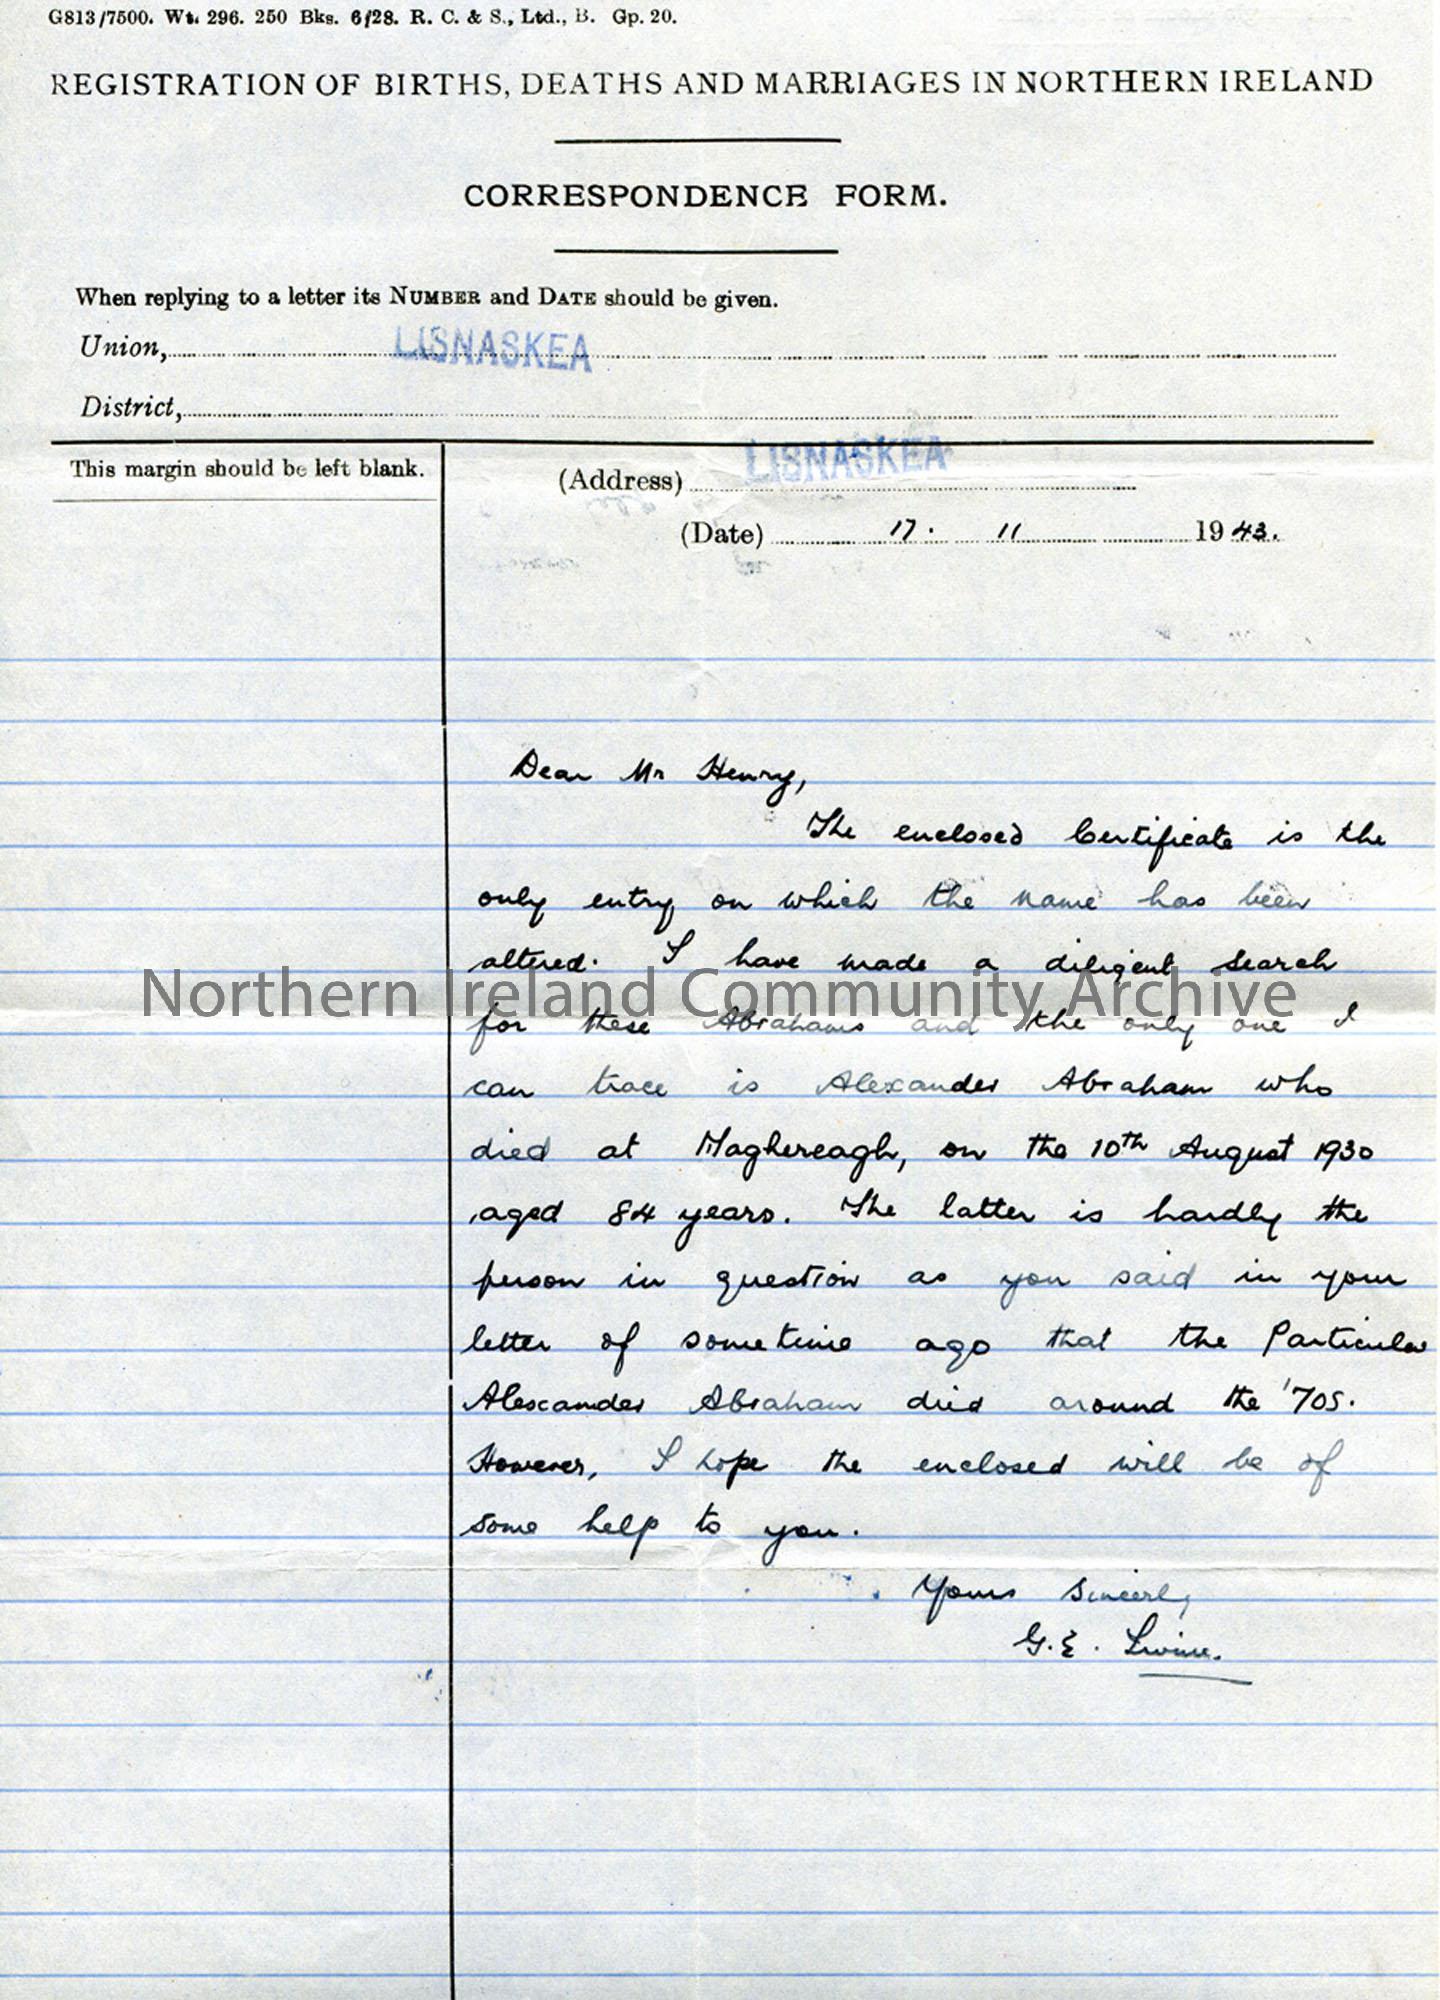 G813/7500. Wt. 296. 250 Bks. 6/28. R. C. & S., Ltd., B. Gp. 20.
REGISTRATION OF BIRTHS, DEATHS AND MARRIAGES IN NORTHERN IRELAND
CORRESPONDENCE FORM.
When replying to a letter its NUMBER and DATE should be given.
Union, LISNASKEA
District,
This margin should be left blank.
(Address) LISNASKEA
(Date) 17. 11 1943.
Dear Mr Henry,
The enclosed Certificate is the
only entry on which the name has been
altered. I have made a diligent search
Northern Ireland Community Archive
for these Abrahams and the only one I
can trace is Alexander Abraham who
died at Maghereagh, on the 10th August 1930
aged 84 years. The latter is hardly the
person in question as you said in your
letter of sometime ago that the Particular
Alexander Abraham died around the '70s.
However, I hope the enclosed will be of
some help to you.
Yours Sincerly
G. E.